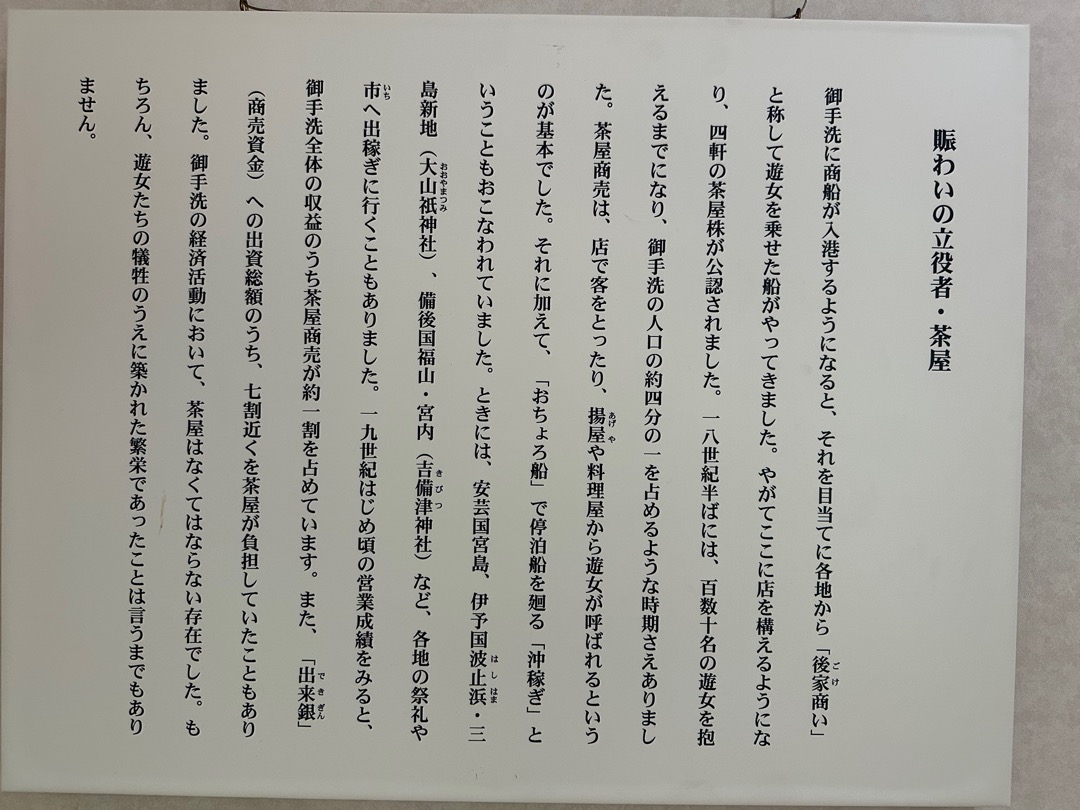 賑わいの立役者・茶屋
御手洗に商船が入港するようになると、それを目当てに各地から「後家商い」
と称して遊女を乗せた船がやってきました。やがてここに店を構えるようにな
り、四軒の茶屋株が公認されました。一八世紀半ばには、百数十名の遊女を抱
えるまでになり、御手洗の人口の約四分の一を占めるような時期さえありまし
た。茶屋商売は、店で客をとったり、揚屋や料理屋から遊女が呼ばれるという
のが基本でした。それに加えて、「おちょろ船」で停泊船を廻る「沖稼ぎ」と
いうこともおこなわれていました。ときには、安芸国宮島、伊予国波止浜・三
島新地（大山祇神社）、備後国福山・宮内（吉備津神社）など、各地の祭礼や
市へ出稼ぎに行くこともありました。一九世紀はじめ頃の営業成績をみると、
御手洗全体の収益のうち茶屋商売が約一割を占めています。また、「出来銀」
（商売資金）への出資総額のうち、七割近くを茶屋が負担していたこともあり
ました。御手洗の経済活動において、茶屋はなくてはならない存在でした。も
ちろん、遊女たちの犠牲のうえに築かれた繁栄であったことは言うまでもあり
ません。